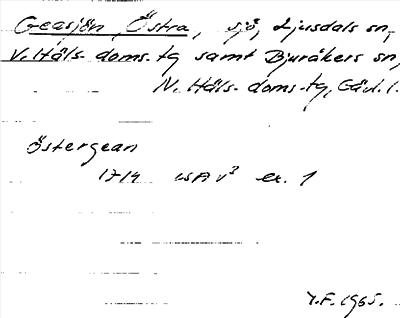 Geasjön, Östra, sjö, Ljusdals sn,
V. Häls. doms. tg samt Bjuråkers sn,
N. Häls. doms. tg, Gävl. l.
Östergean
1714 LSA V³ ex. 1
Y.F. 1965.